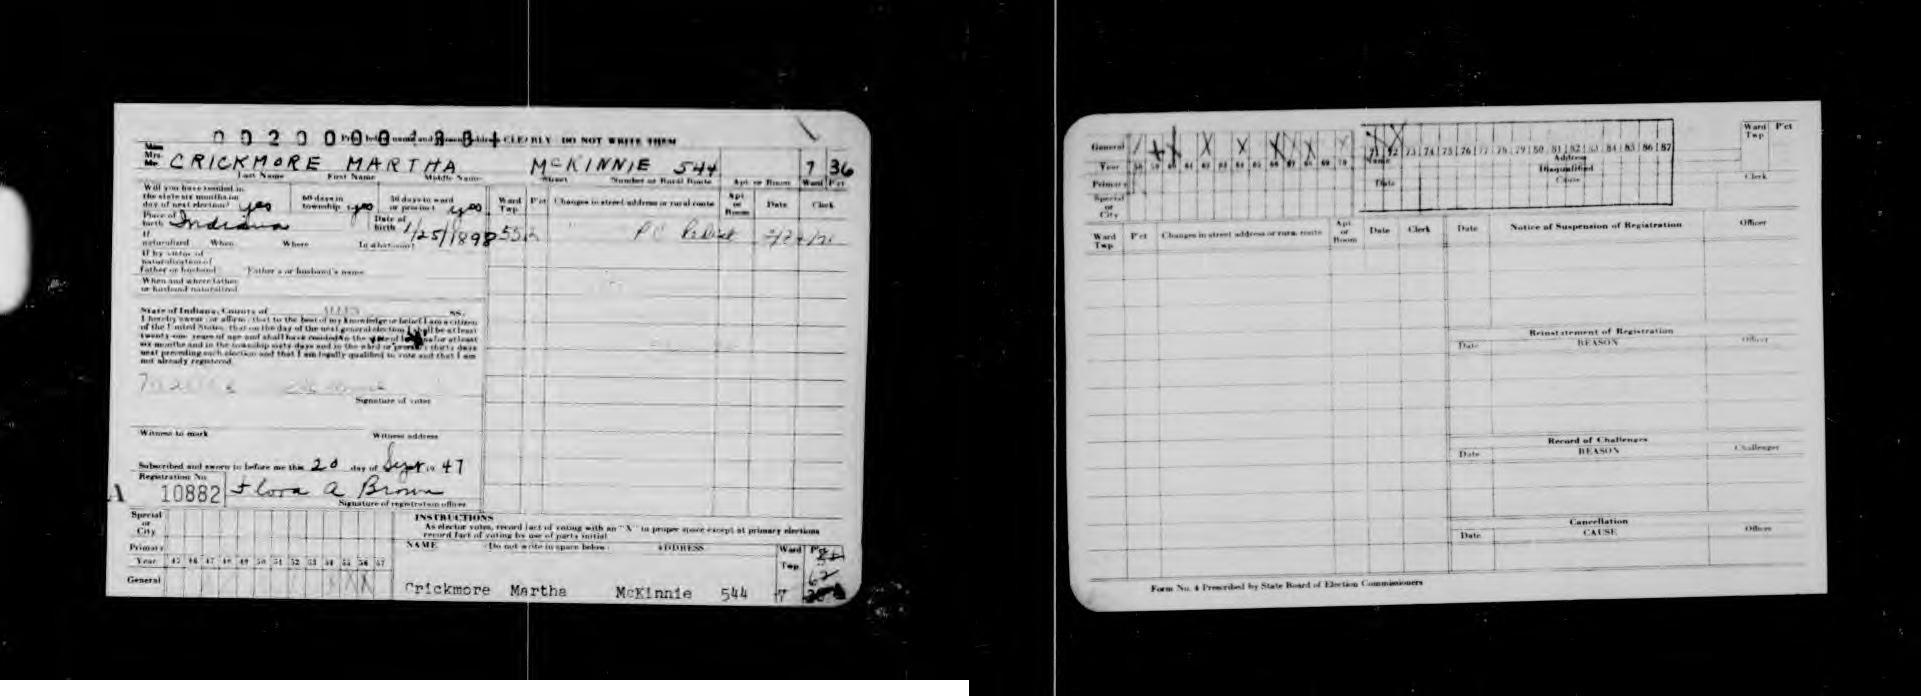 CLEARLY DO NOT WRITE THEM
Miss
Mrs.
Mr. CRICKMORE MARTHA McKINNIE 544 7 36
Last Name First Name Middle Name Street Number or Rural Route Apt. or Room Ward Pct
Will you have resided in
the state six months on
day of next election? yes
60 days in
township yes
30 days in ward
or precinct yes
Ward
Twp.
P'ct
Changes in street address or rural route
Apt
or
Room
Date
Clerk
Place of
birth Indiana
Date of
birth 1/25/1898
55
If
naturalized When Where In what court
If by virtue of
naturalization of
father or husband Father's or husband's name
When and where father
or husband naturalized
State of Indiana, County of SS.
I hereby swear (or affirm) that to the best of my knowledge or belief I am a citizen
of the United States, that on the day of the next general election I shall be at least
twenty-one years of age and shall have resided in the state of Indiana for at least
six months and in the township sixty days and in the ward or precinct thirty days
next preceding such election and that I am legally qualified to vote and that I am
not already registered.
Signature of voter
Witness to mark Witness address
Subscribed and sworn to before me this 20 day of Sept 19 47
Registration No.
A 10882 Flora A Brown
Signature of registration officer
Special
or
City
Primary
Year 45 46 47 48 49 50 51 52 53 54 55 56 57
General
INSTRUCTIONS
As elector votes, record fact of voting with an "X" in proper space except at primary elections
record fact of voting by use of party initial
NAME (Do not write in space below) ADDRESS Ward P'ct
Twp.
62
Crickmore Martha McKinnie 544 7
General
Year 58 59 60 61 62 63 64 65 66 67 68 69 70 71 72 73 74 75 76 77 78 79 80 81 82 83 84 85 86 87
Primary
Special
or
City
Name Address
Disqualified
Date Cause
Ward
Twp
P'ct
Clerk
Ward
Twp.
P'ct
Changes in street address or rural route
Apt
or
Room
Date
Clerk
Date Notice of Suspension of Registration Officer
Reinstatement of Registration
Date REASON Officer
Record of Challenges
Date REASON Challenger
Cancellation
Date CAUSE Officer
Form No. 4 Prescribed by State Board of Election Commissioners